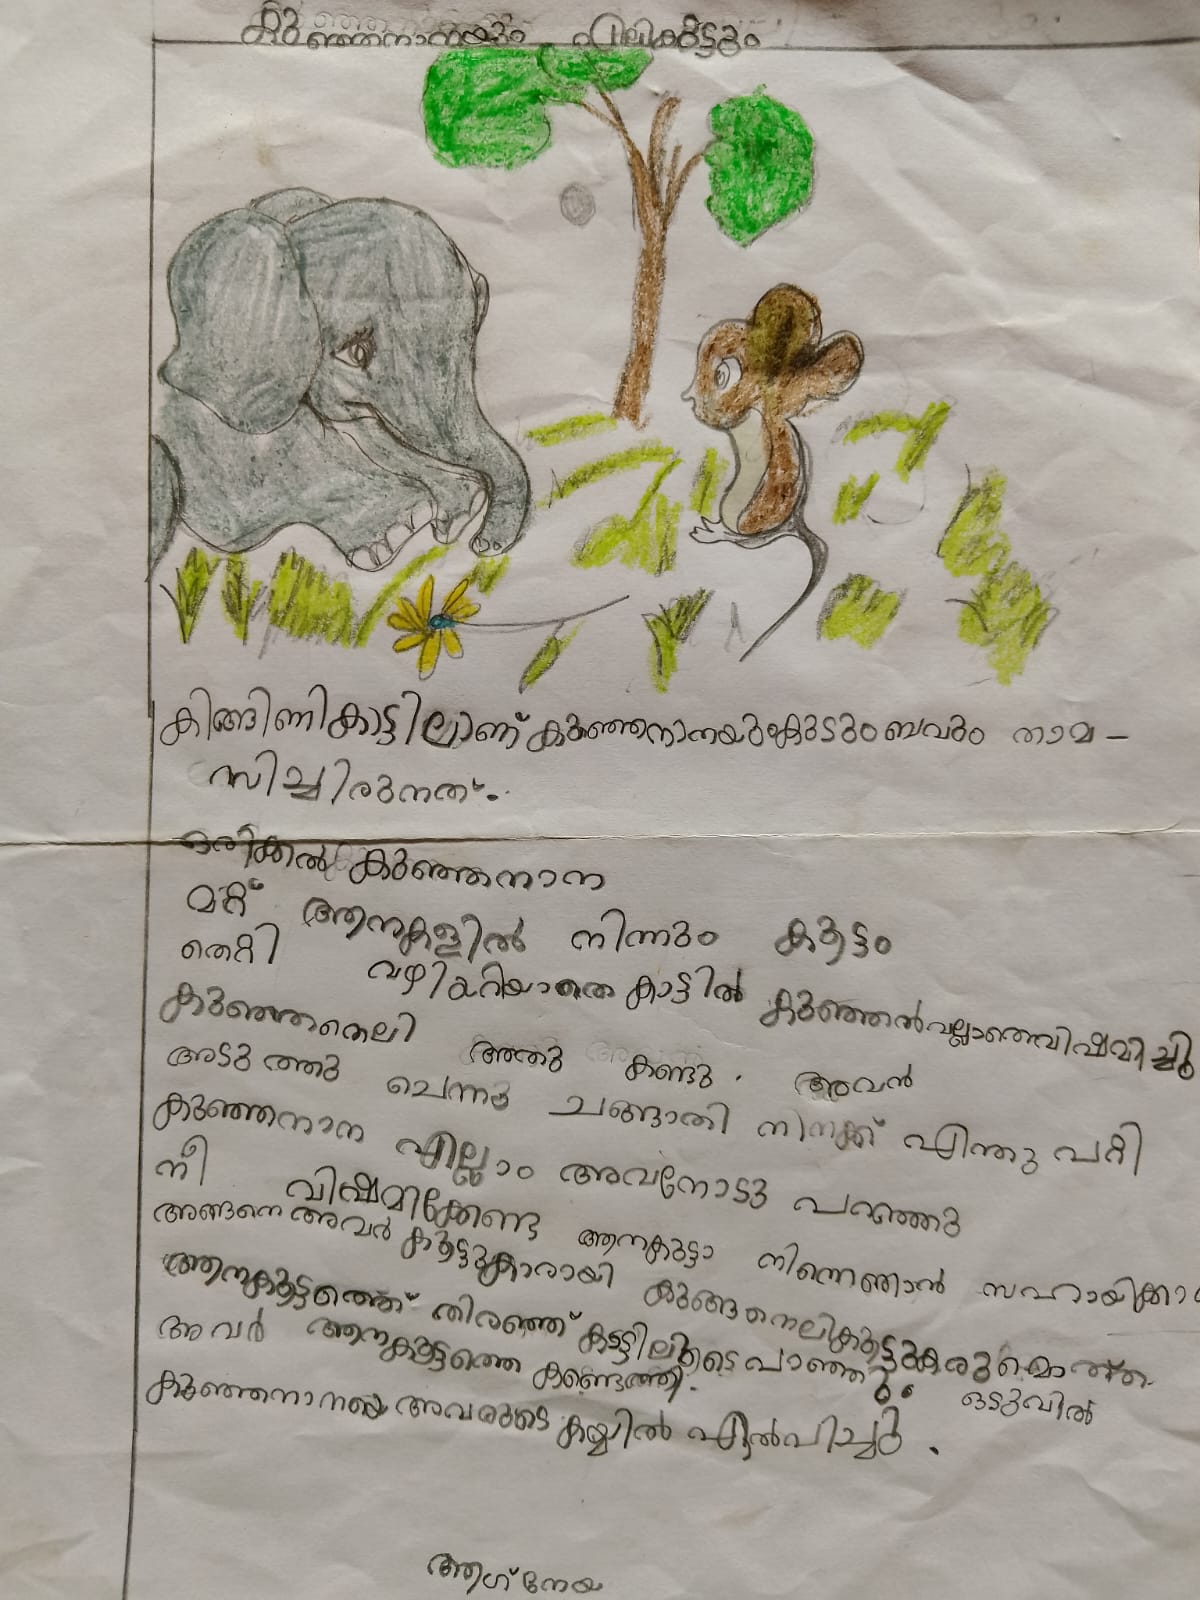 കുഞ്ഞനാനയും എലികുട്ടും
കിങ്ങിണികാട്ടിലാണ് കുഞ്ഞനാനയുംകുടുംബവും താമ-
സിച്ചിരുനത്.
ഒരിക്കൽ കുഞ്ഞനാന
മറ്റ് ആനുകളിൽ നിന്നും കൂട്ടം
തെറ്റി വഴിഅറിയാതെ കാട്ടിൽ കുഞ്ഞൽവല്ലാതെവിഷമിച്ചു
കുഞ്ഞതെലി അതു കണ്ടു. അവൻ
അടുത്തു ചെന്നു ചങ്ങാതി നിനക്ക് എന്തു പറ്റി
കുഞ്ഞനാന എല്ലാം അവനോടു പറഞ്ഞു
നീ വിഷമിക്കേണ്ട ആനകുട്ടാ നിന്നെഞാൻ സഹായിക്കാ
അങ്ങനെ അവർ കൂട്ടുകാരായി കുങ്ങനെലികൂട്ടുകരുമൊത്ത
ആനകൂട്ടത്തെ തിരഞ്ഞ് കാട്ടിലൂടെ പാഞ്ഞു. ഒടുവിൽ
അവർ ആനകൂട്ടത്തെ കണ്ടെത്തി.
കുഞ്ഞനാനയെ അവരുടെ കയ്യിൽ ഏൽപിച്ചു.
ആഗ്നേയ